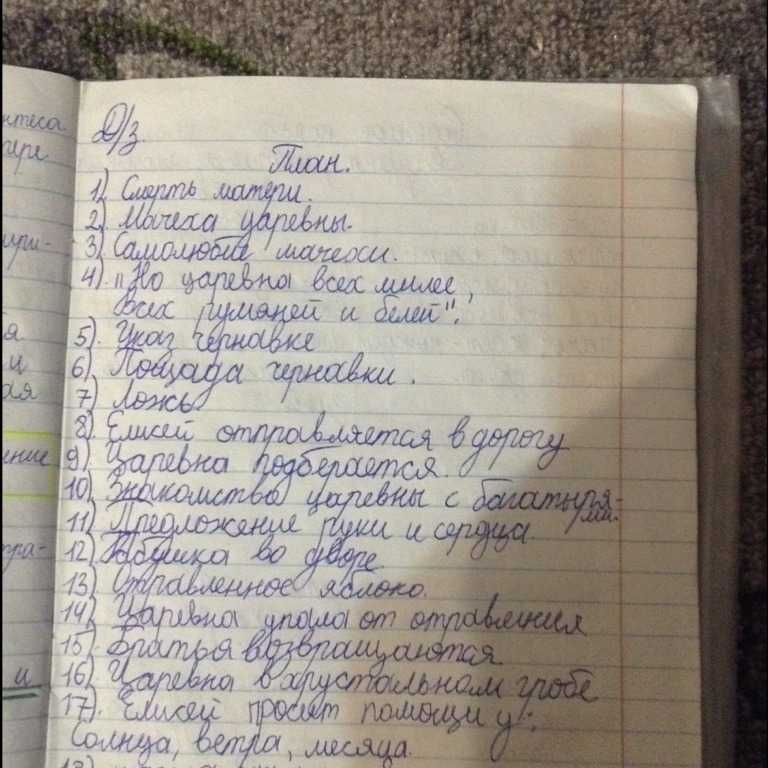 нтеса
тере
Д/з.
План.
1) Смерть матери.
2) Мачеха царевны.
3) Самолюбие мачехи.
4). "Но царевна всех милее,
Всех румяней и белей".
5). Указ чернавке
6). Пощада чернавки.
7) Ложь.
8). Елисей отправляется в дорогу
9) Царевна подберается.
10). Знакомства царевны с багатыря-
ми.
11) Предложение руки и сердца.
12) Бабушка во дворе
13) Отравленное яблоко.
14) Царевна упала от отравления
15). Братья возвращаются
16) Царевна в хрустальном гробе
17). Елисей просит помощи у:
Солнца, ветра, месяца.
18)